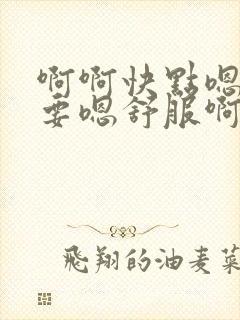 啊啊快點嗯
要嗯舒服啊
飛翔的油麦菜